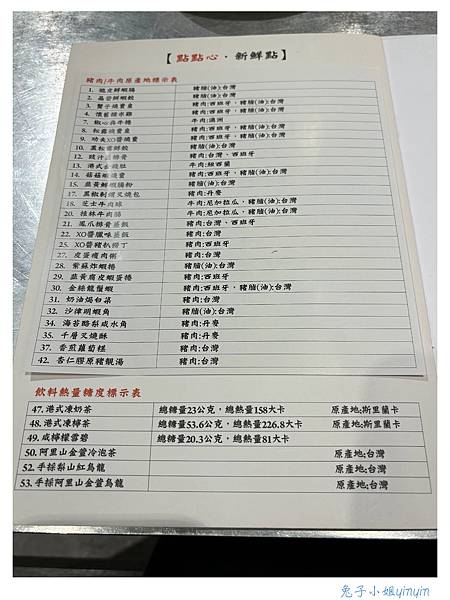 【點點心．新鮮點】
豬肉/牛肉原產地標示表
1. 脆皮鮮蝦腸 豬脂(油):台灣
2. 晶瑩鮮蝦餃 豬脂(油):台灣
3. 蟹子燒賣皇 豬肉:西班牙，豬脂(油):台灣
4. 懷舊糯米雞 豬肉:西班牙，豬脂(油):台灣
7. 牛肉:澳洲
8. 松露燒賣皇 豬肉:西班牙，豬脂(油):台灣
9. 功夫XO醬燒賣 豬肉:西班牙，豬脂(油):台灣
10. 黑松露鮮餃 豬脂(油):台灣
12. 豉汁蒸排骨 豬肉:台灣、西班牙
13. 港式 牛肉:紐西蘭
14. 菇菇蝦燒賣 豬肉:西班牙，豬脂(油):台灣
15. 韭黃鮮蝦腸粉 豬脂(油):台灣
17. 黑椒叉燒包 豬肉:丹麥
18. 芝士牛肉球 牛肉:尼加拉瓜，豬脂(油):台灣
20. 桂林牛肉腸 牛肉:尼加拉瓜，豬脂(油):台灣
21. 鳳爪排骨蒸飯 豬肉:台灣、西班牙
22. XO醬臘味蒸飯 豬肉:台灣
25. XO醬豬扒撈丁 豬肉:西班牙
27. 皮蛋瘦肉粥 豬肉:台灣
28. 紫蘇炸蝦捲 豬脂(油):台灣
29. 韭黃腐皮蝦蛋捲 豬脂(油):台灣
30. 金絲龍鬚蝦 豬肉:西班牙，豬脂(油):台灣
31. 奶油焗白菜 豬肉:台灣
32. 沙律明蝦角 豬脂(油):台灣
34. 海苔鵝梨咸水角 豬肉:丹麥
35. 千層叉燒酥 豬肉:丹麥
37. 香煎蘿蔔糕 豬肉:台灣
42. 杏仁膠原豬骨湯 豬肉:台灣
飲料熱量糖度標示表
47. 港式凍奶茶 總糖量23公克，總熱量158大卡 原產地:斯里蘭卡
48. 港式凍檸茶 總糖量53.6公克，總熱量226.8大卡 原產地:斯里蘭卡
49. 咸檸檬雪碧 總糖量20.3公克，總熱量81大卡
50. 阿里山金萱冷泡茶 原產地:台灣
52. 手採梨山紅烏龍 原產地:台灣
53. 手採阿里山金萱烏龍 原產地:台灣
兔子小姐yinyin